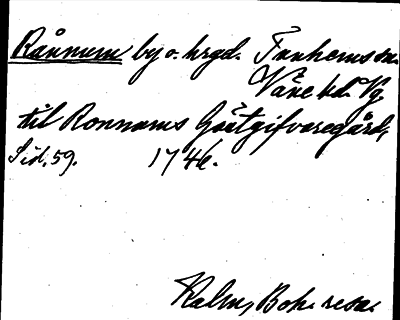 Rånnum by o. hrgd. Tunhems sn.
Väne hd. Vg.
til Ronnums Gästgifvaregård,
Sid. 59. 1746.
Kalm, Boh. resa